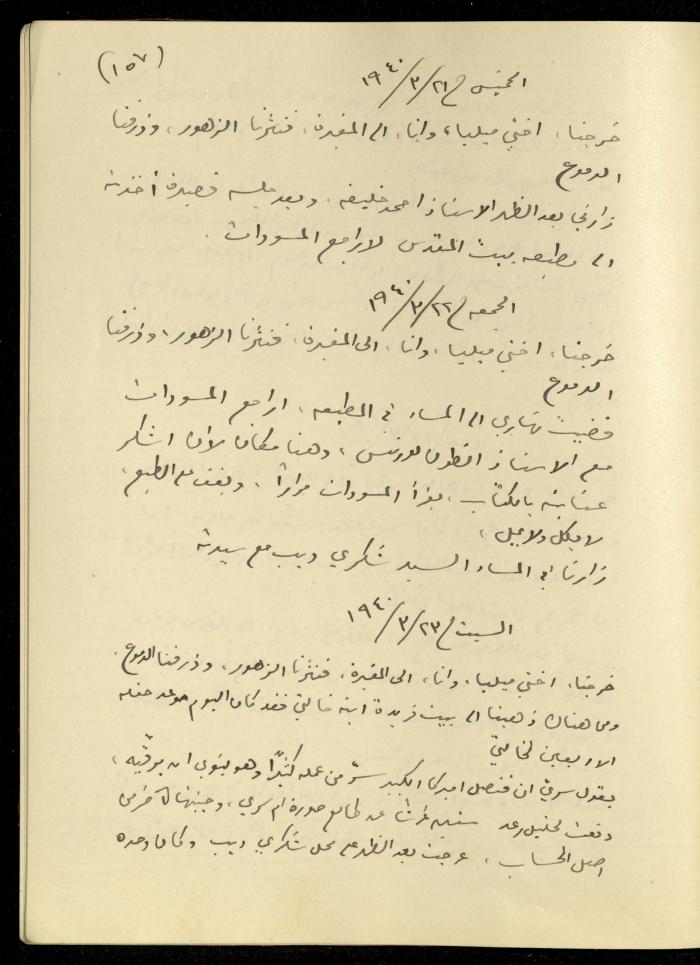 (١٥٧)
الخميس في ٢١/٣/١٩٤٠
خرجنا، اختي ميليا، وانا، الى المقبرة، فنثرنا الزهور، وذرفنا
الدموع
زارني بعد الظهر الاستاذ احمد خليفه. وبعد جلسه قصيرة أخذته
الى مطبعه بيت المقدس لاراجع المسودات.
الجمعه في ٢٢/٣/١٩٤٠
خرجنا، اختي ميليا، وانا، الى المقبرة، فنثرنا الزهور، وذرفنا
الدموع
قضيت نهاري الى المساء في المطبعه، اراجع المسودات
مع الاستاذ انطون لورنس، وهنا مكان لأن اشكر
عنايته بالكتاب، يقرأ المسودات مراراً، ويقف على الطبع،
لا يكل ولا يمل،
زارنا في المساء السيد شكري ديب مع سيدته
السبت في ٢٣/٣/١٩٤٠
خرجنا، اختي ميليا، وانا، الى المقبرة، فنثرنا الزهور، وذرفنا الدموع.
ومن هناك ذهبنا الى بيت فريدة ابنة خالتي فقد كان اليوم موعد حفله
الاربعين لخالتي
يقول سري ان قنصل اميركا الكبير سُرّ من عمله كثيرًا وهو ينوي ان يرقّيه،
دفعت لخليل رعد ستين غرشا عن طابع صورة ام سري، وجنيها من
اصل الحساب، عرجت بعد الظهر على محل شكري ديب وكان وحده